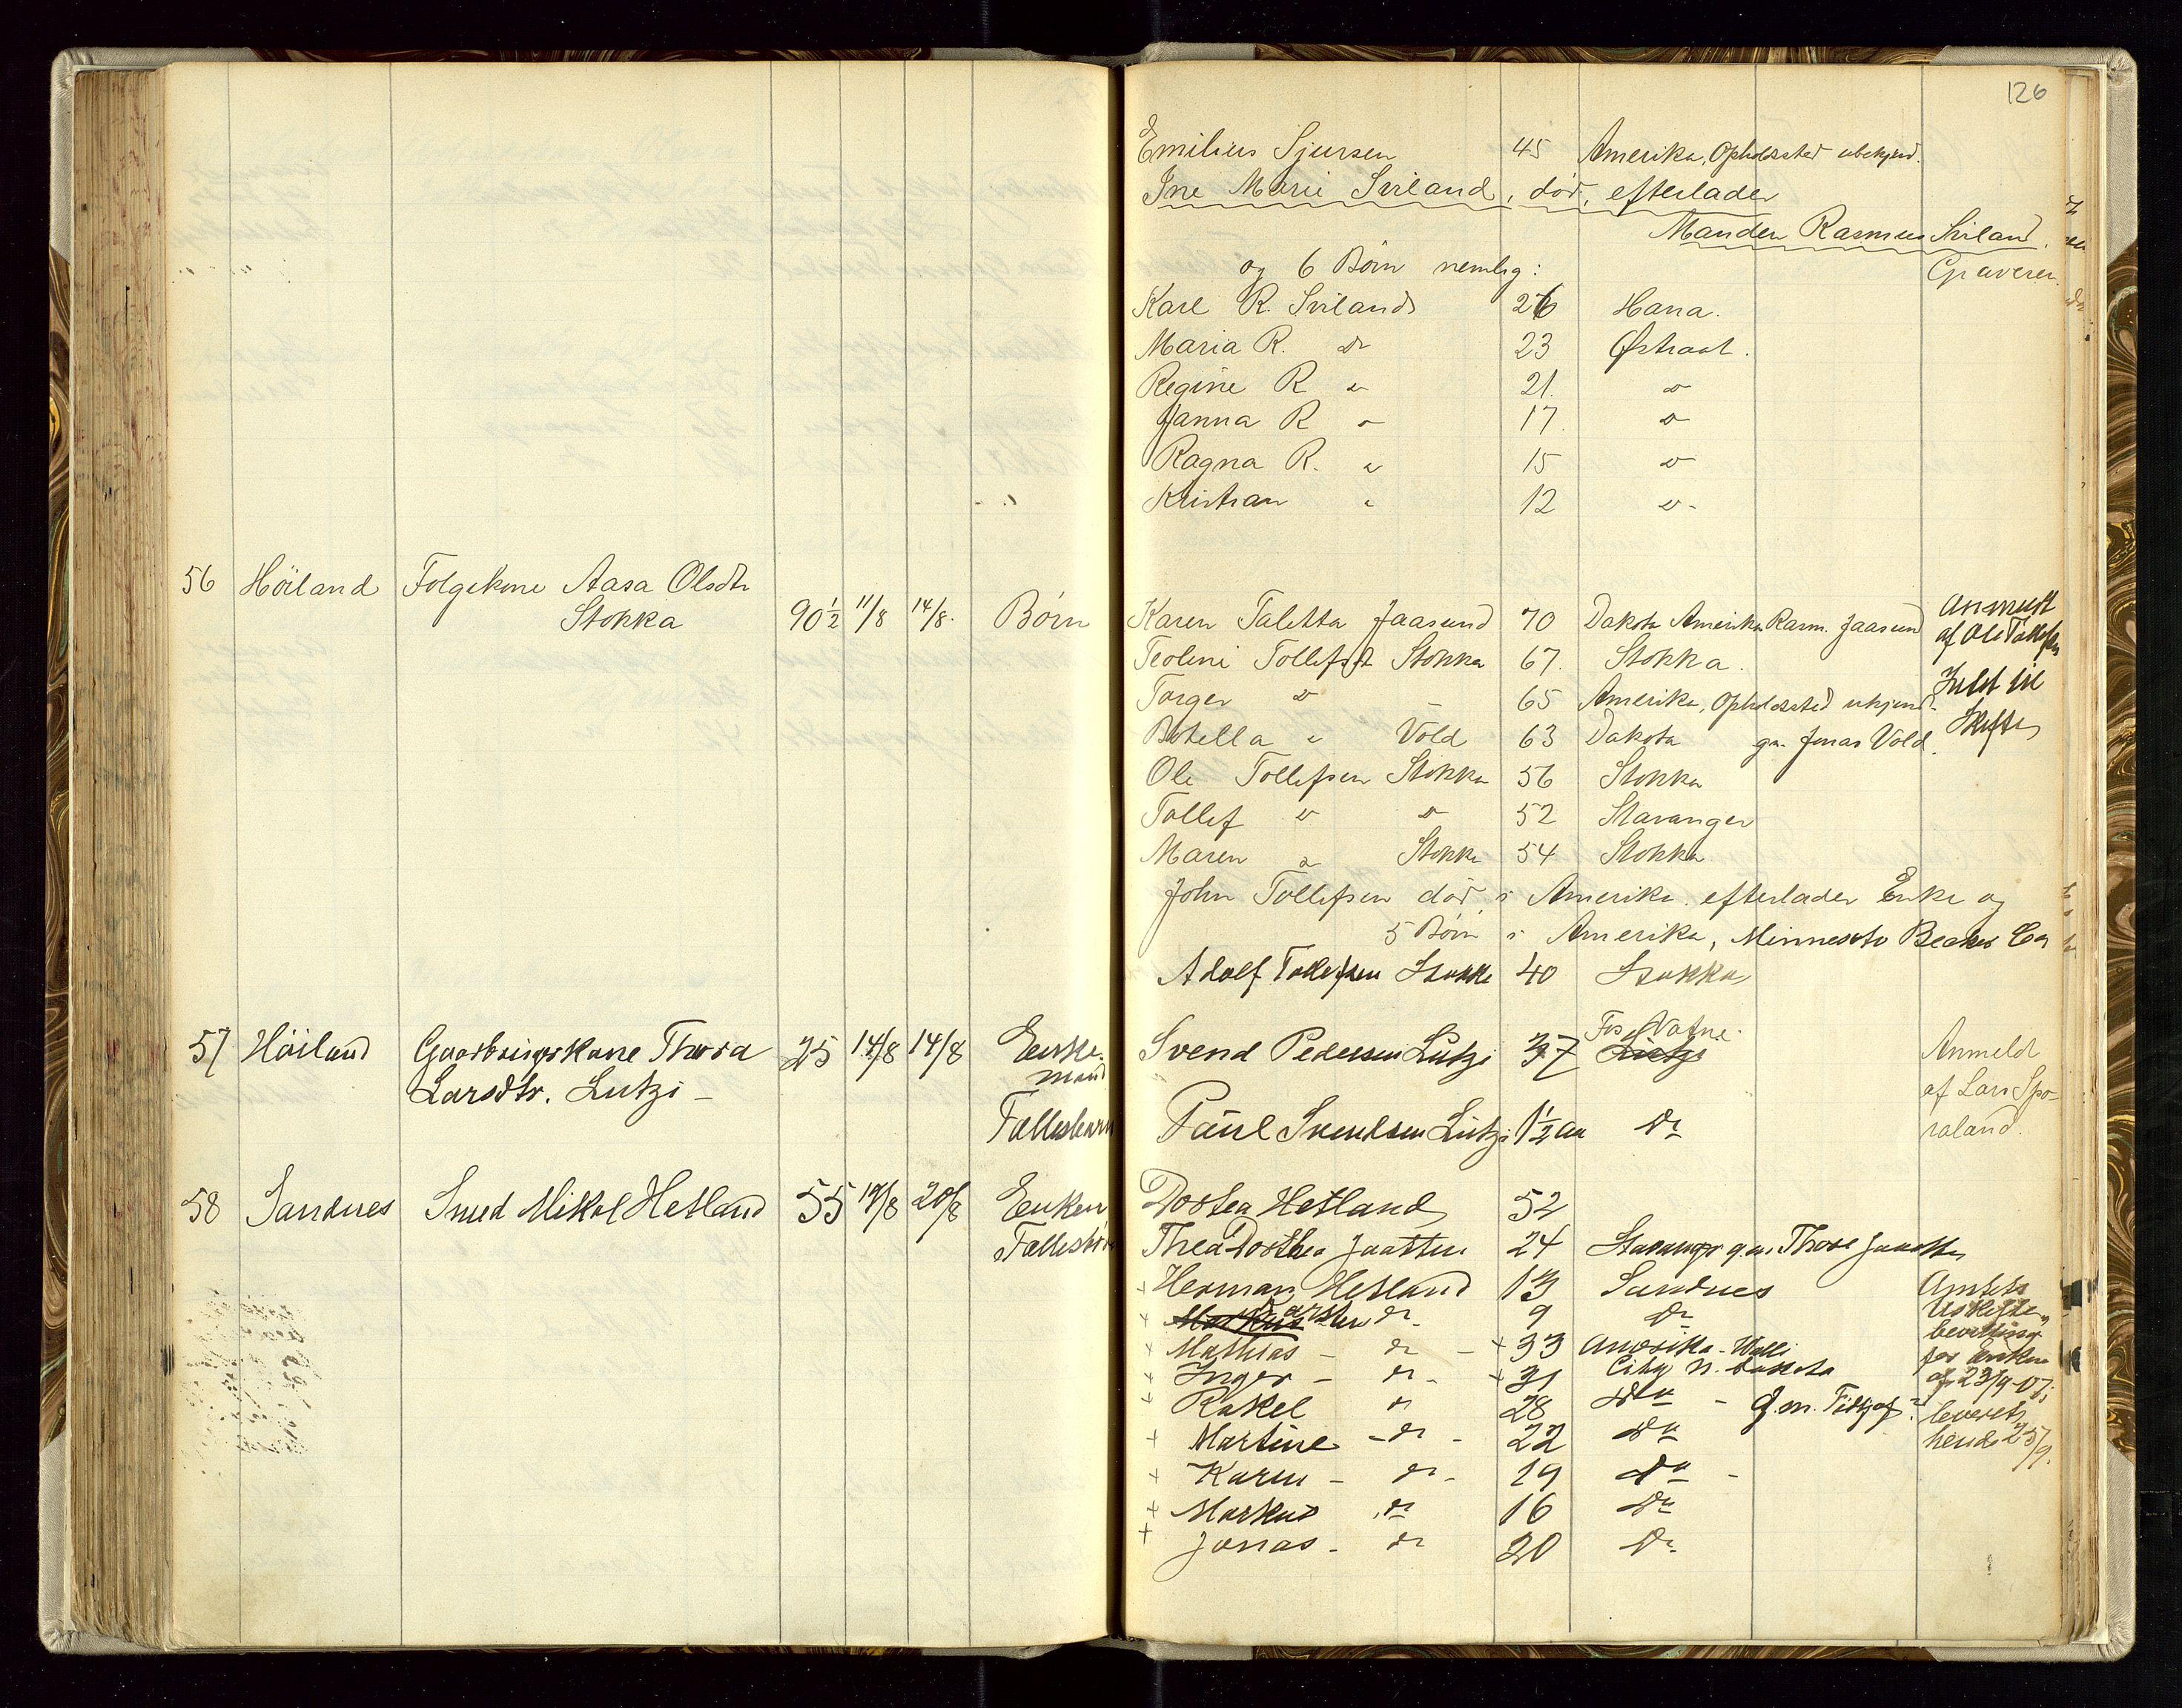 126
Emilius Sjursen 45 Amerika, Opholdssted ubekjend.
Ine Marie Sviland, død, efterlader
Manden Rasmus Sviland.
og 6 Børn nemlig: Graveren.
Karl R. Sviland 26 Hana.
Maria R. do 23 Østraat.
Regine R do 21. do
Janna R do 17 do
Ragna R. do 15 do
Kristian do 12 do
56 Höiland Folgekone Aasa Olsdtr
Stokka 90 1/2 11/8 14/8. Børn
Karen Taletta Jaasund 70 Dakota Amerika Rasm. Jaasund Anmeldt
af Ole Tollefsen
Teoline Tollefsdt Stokka 67. Stokka.
Torger do 65 Amerika, Opholdssted ukjend. Intet til
Skifte
Botella do Vold 63 Dakota gm. Jonas Vold.
Ole Tollefsen Stokka 56 Stokka
Tollef do do 52 Stavanger
Maren do Stokka 54 Stokka
John Tollefsen død i Amerika. efterlader Enke og
5 Børn i Amerika, Minnesota Beaker Co
Adolf Tollefsen Stokke 40 Stokka
57 Höiland Gaardbrugerkone Thora 25 14/8 14/8 Enke-
mand
Larsdtr. Lutzi -
Fællesbarn
Fos Vatne.
Svend Pedersen Lutzi 37 Lutzi
Anmeldt
af Lars Spo-
raland.
Paul Svendsen Lutzi 1 1/2 aar Do
58 Sandnes Smed Mikal Hetland 55 19/8 20/8 Enken
Fællesbørn
Dortea Hetland 52
Thea Dorthea Jaatten 24 Stavanger g.m. Thore Jaatten
+ Herman Hetland 13 Sandnes
+ Markus do 9 do
+ Mathias - do - + 33 Amerika - Walli
+ Inger - do - + 31 City N. Dakota
+ Rakel do 28 do - g.m. Fidtjof ?
+ Martine - do - 22 do
+ Karen - do - 19 do -
+ Markus do 16 do
+ Jonas - do 20 do
Amtets
Uskifte-
bevilling
for Enken
af 23/9-07;
leveret
hende 25/9.